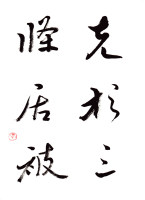 克於三
怪居被